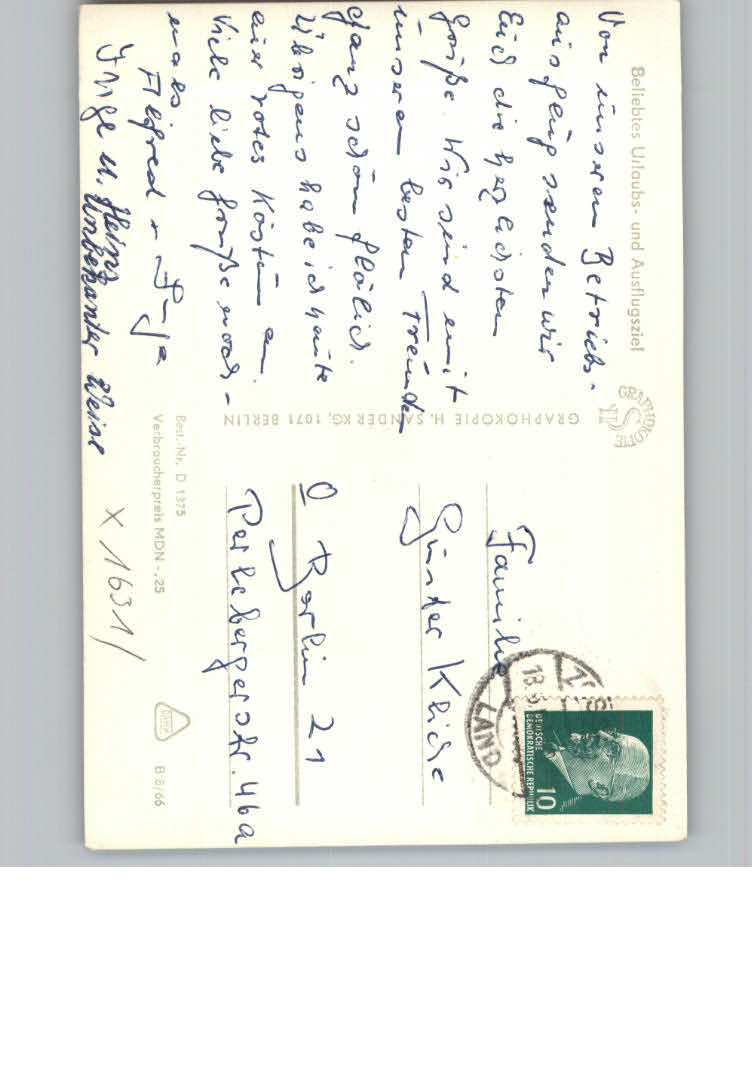 Beliebtes Urlaubs- und Ausflugsziel
Von unserem Betriebs-
ausflug senden wir
Euch die herzlichsten
Grüße. Wir sind mit
unseren besten Freunden
ganz schön fröhlich.
Übrigens habe ich heute
ein rotes Kostüm an.
Viele liebe Grüße noch-
mals.
Alfred u. Inge
Inge u. Heinz
Unbekanter Weise
GRAPHOKOPIE
GRAPHOKOPIE H. SANDER KG, 1071 BERLIN
Best.-Nr. D 1375
Verbraucherpreis MDN -,25
DEUTSCHE
DEMOKRATISCHE REPUBLIK
10
18.
Familie
Günter Kliche
Berlin 21
Perlebergerstr. 46a
X 1631/
B 8/66